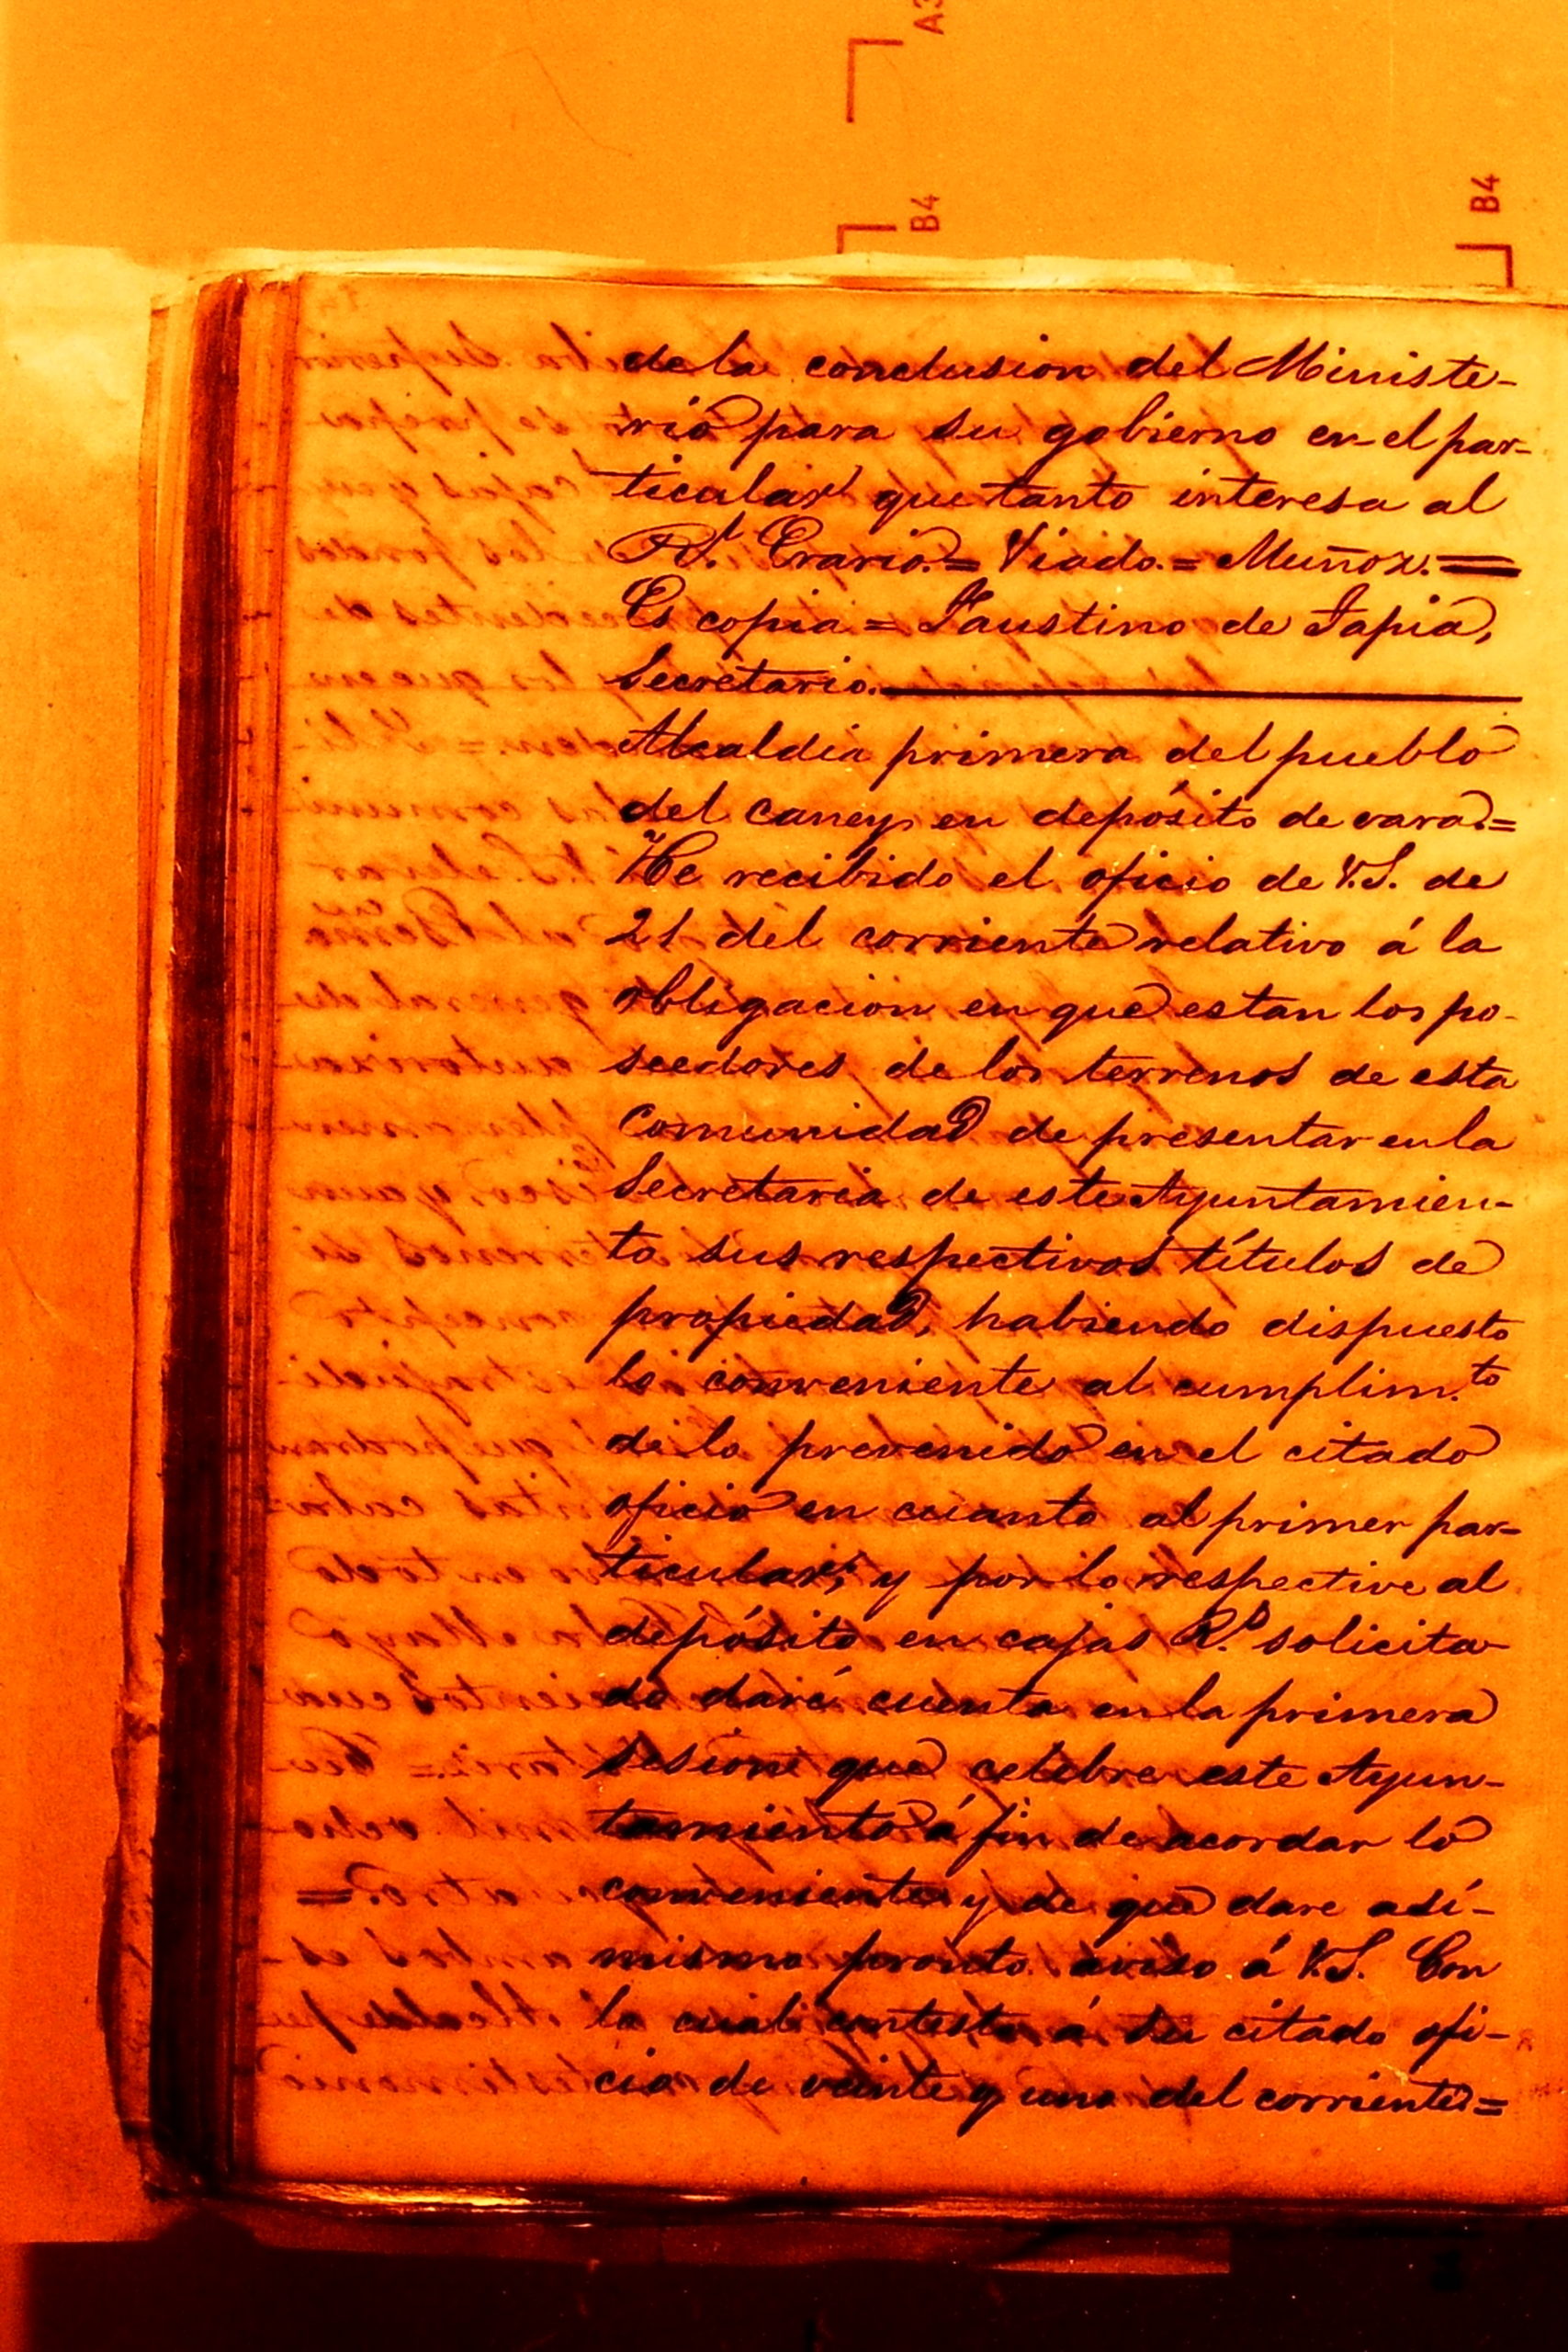 A3
B4
B4
de la conclusion del Ministe-
rio para su gobierno en el par-
ticular que tanto interesa al
Rl. Erario.= Viado.= Muñox.=
Es copia = Faustino de Tapia,
Secretario.
Alcaldia primera del pueblo
del caney en depósito de vara.=
He recibido el oficio de V.S. de
21 del corriente relativo á la
obligacion en que estan los po-
seedores de los terrenos de esta
comunidad de presentar en la
Secretaria de este Ayuntamien-
to sus respectivos títulos de
propiedad, habiendo dispuesto
lo conveniente al cumplim.to
de lo prevenido en el citado
oficio en cuanto al primer par-
ticular; y por lo respective al
depósito en cajas R.s solicita-
do daré cuenta en la primera
sesion que celebre este Ayun-
tamiento á fin de acordar lo
conveniente y de que dare asi-
mismo pronto aviso á V.S. Con
lo cual contesto á su citado ofi-
cio de veinte y uno del corriente=